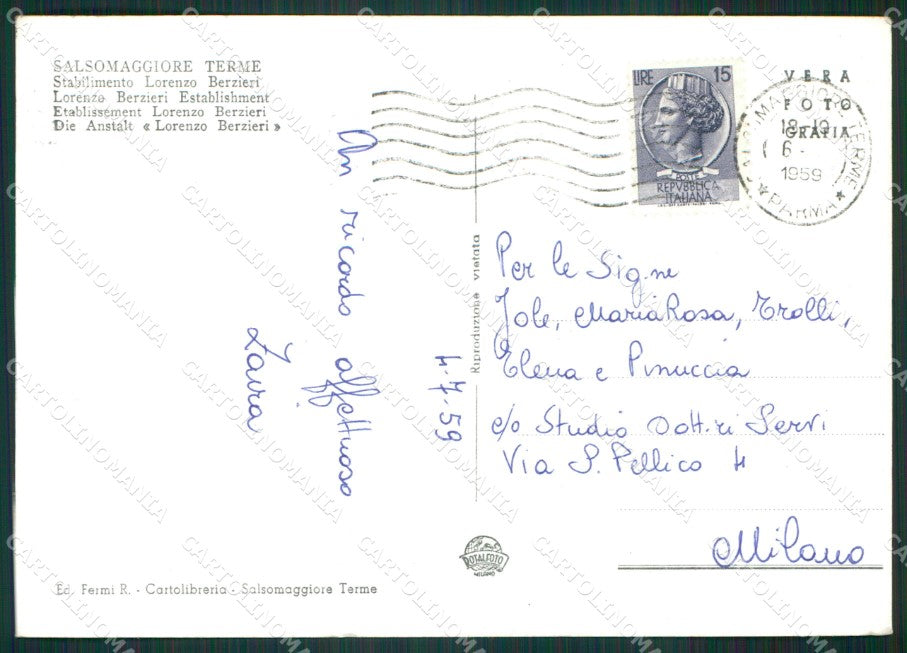 SALSOMAGGIORE TERME
Stabilimento Lorenzo Berzieri
Lorenzo Berzieri Establishment
Etablissement Lorenzo Berzieri
Die Anstalt « Lorenzo Berzieri »
LIRE 15
POSTE
REPVBBLICA
ITALIANA
VERA
FOTO
GRAFIA
SALSOMAGGIORE TERME
18-19
6 -
1959
★ PARMA ★
Un ricordo affettuoso
Zaira
4-7-59
Riproduzione vietata
Per le Sig.ne
Jole, MariaRosa, Trolli,
Elena e Pinuccia
c/o Studio Dott.ri Servi
Via S. Pellico 4
Milano
ROTALFOTO
MILANO
Ed. Fermi R. - Cartolibreria - Salsomaggiore Terme
CARTOLINOMANIA